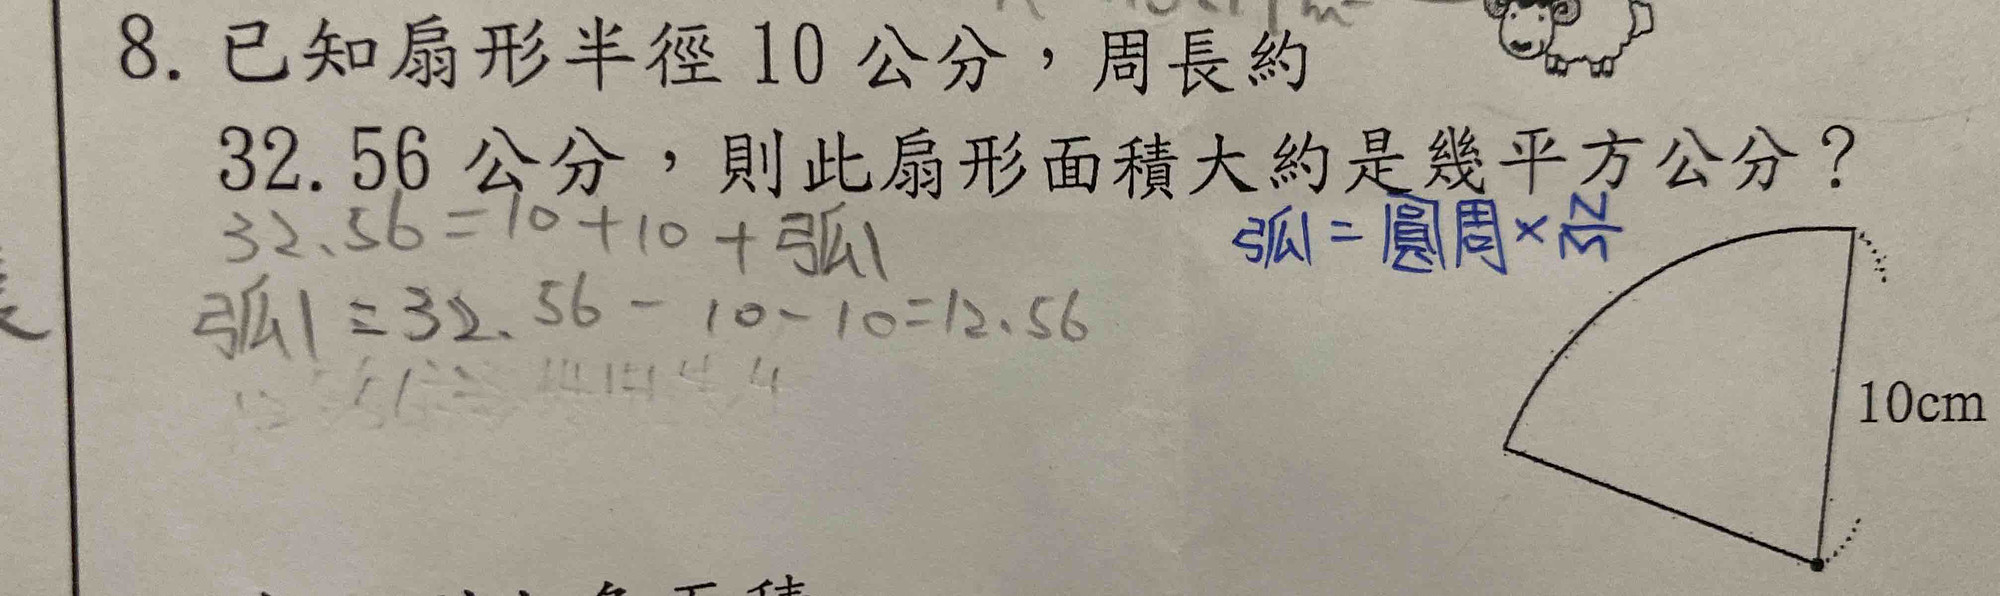 8. 已知扇形半徑 10 公分，周長約
32.56 公分，則此扇形面積大約是幾平方公分？
32.56=10+10+弧
弧=圓周×N/M
弧=32.56-10-10=12.56
10cm